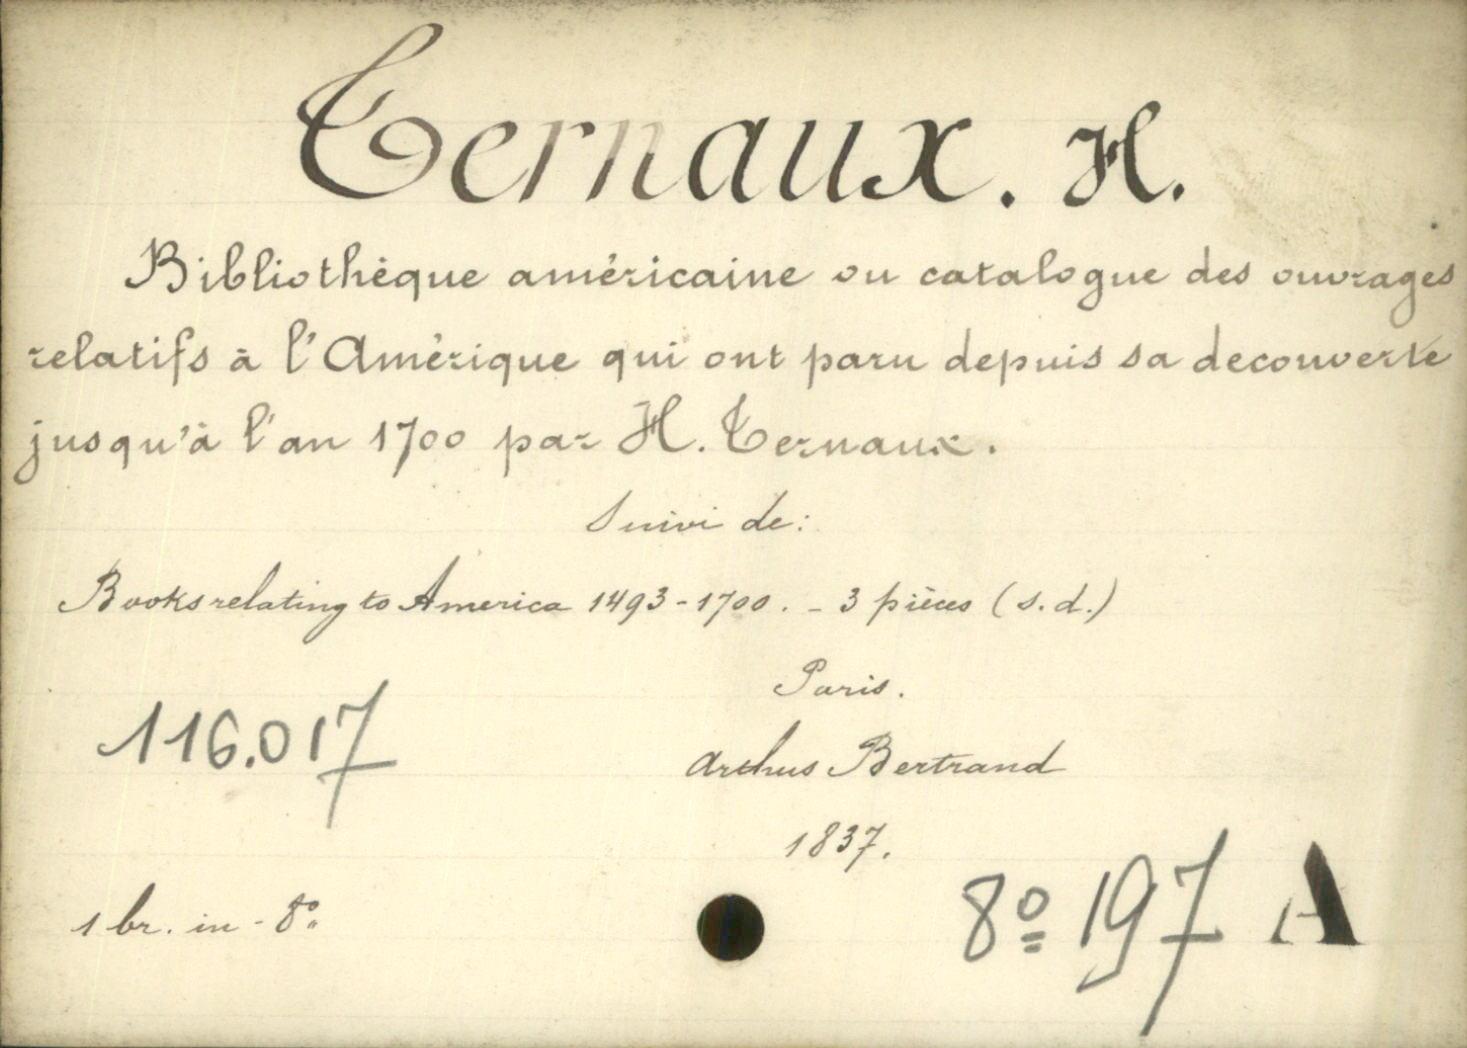 Ternaux. H.
Bibliothèque américaine ou catalogue des ouvrages
relatifs à l'Amérique qui ont paru depuis sa decouverte
jusqu'à l'an 1700 par H. Ternaux.
Suivi de:
Books relating to America 1493-1700. - 3 pièces (s.d.)
Paris.
116.017
Arthus Bertrand
1837.
1 br. in-8º
8º 197 A